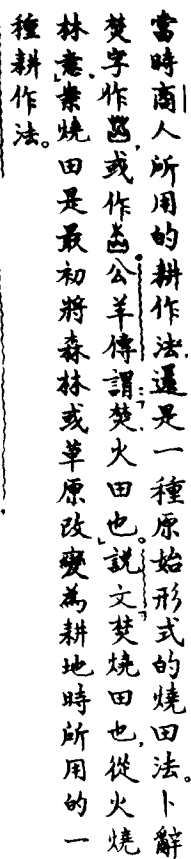 當時商人所用的耕作法，還是一種原始形式的燒田法。卜辭
焚字作，或作。公羊傳謂：「焚，火田也。」說文：「焚，燒田也，從火燒
林意。」案燒田是最初將森林或草原改變為耕地時所用的一
種耕作法。